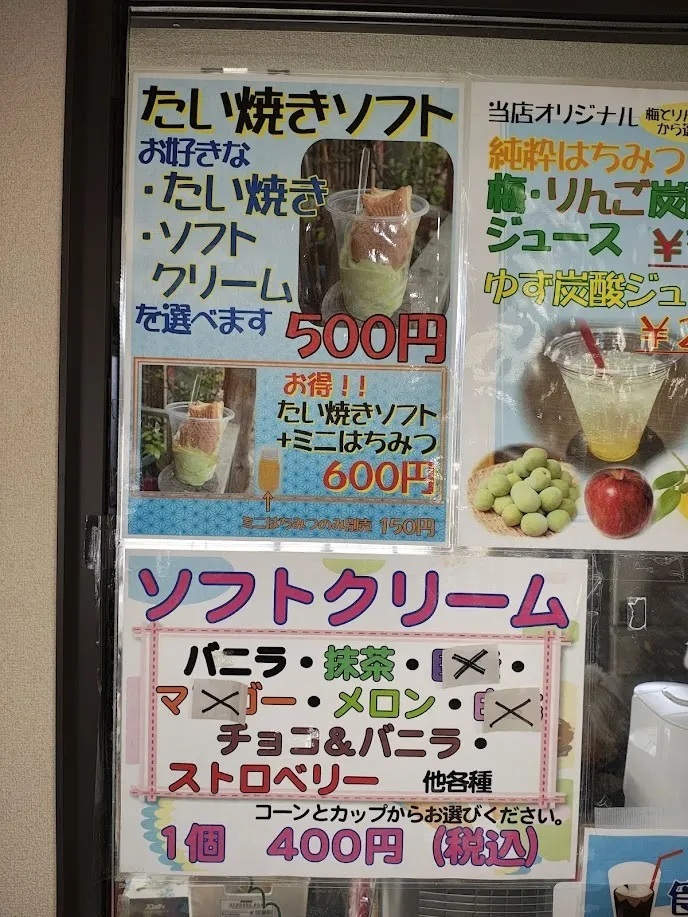 たい焼きソフト
お好きな
・たい焼き
・ソフト
クリーム
を選べます
500円
お得！！
たい焼きソフト
+ミニはちみつ
600円
ミニはちみつのみ別売 150円
当店オリジナル
から
純粋はちみつ
梅・りんご炭
ジュース
¥
ゆず炭酸ジュ
ソフトクリーム
バニラ・抹茶・
マ ゴー・メロン・
チョコ&バニラ・
ストロベリー 他各種
コーンとカップからお選びください。
1個 400円 (税込)